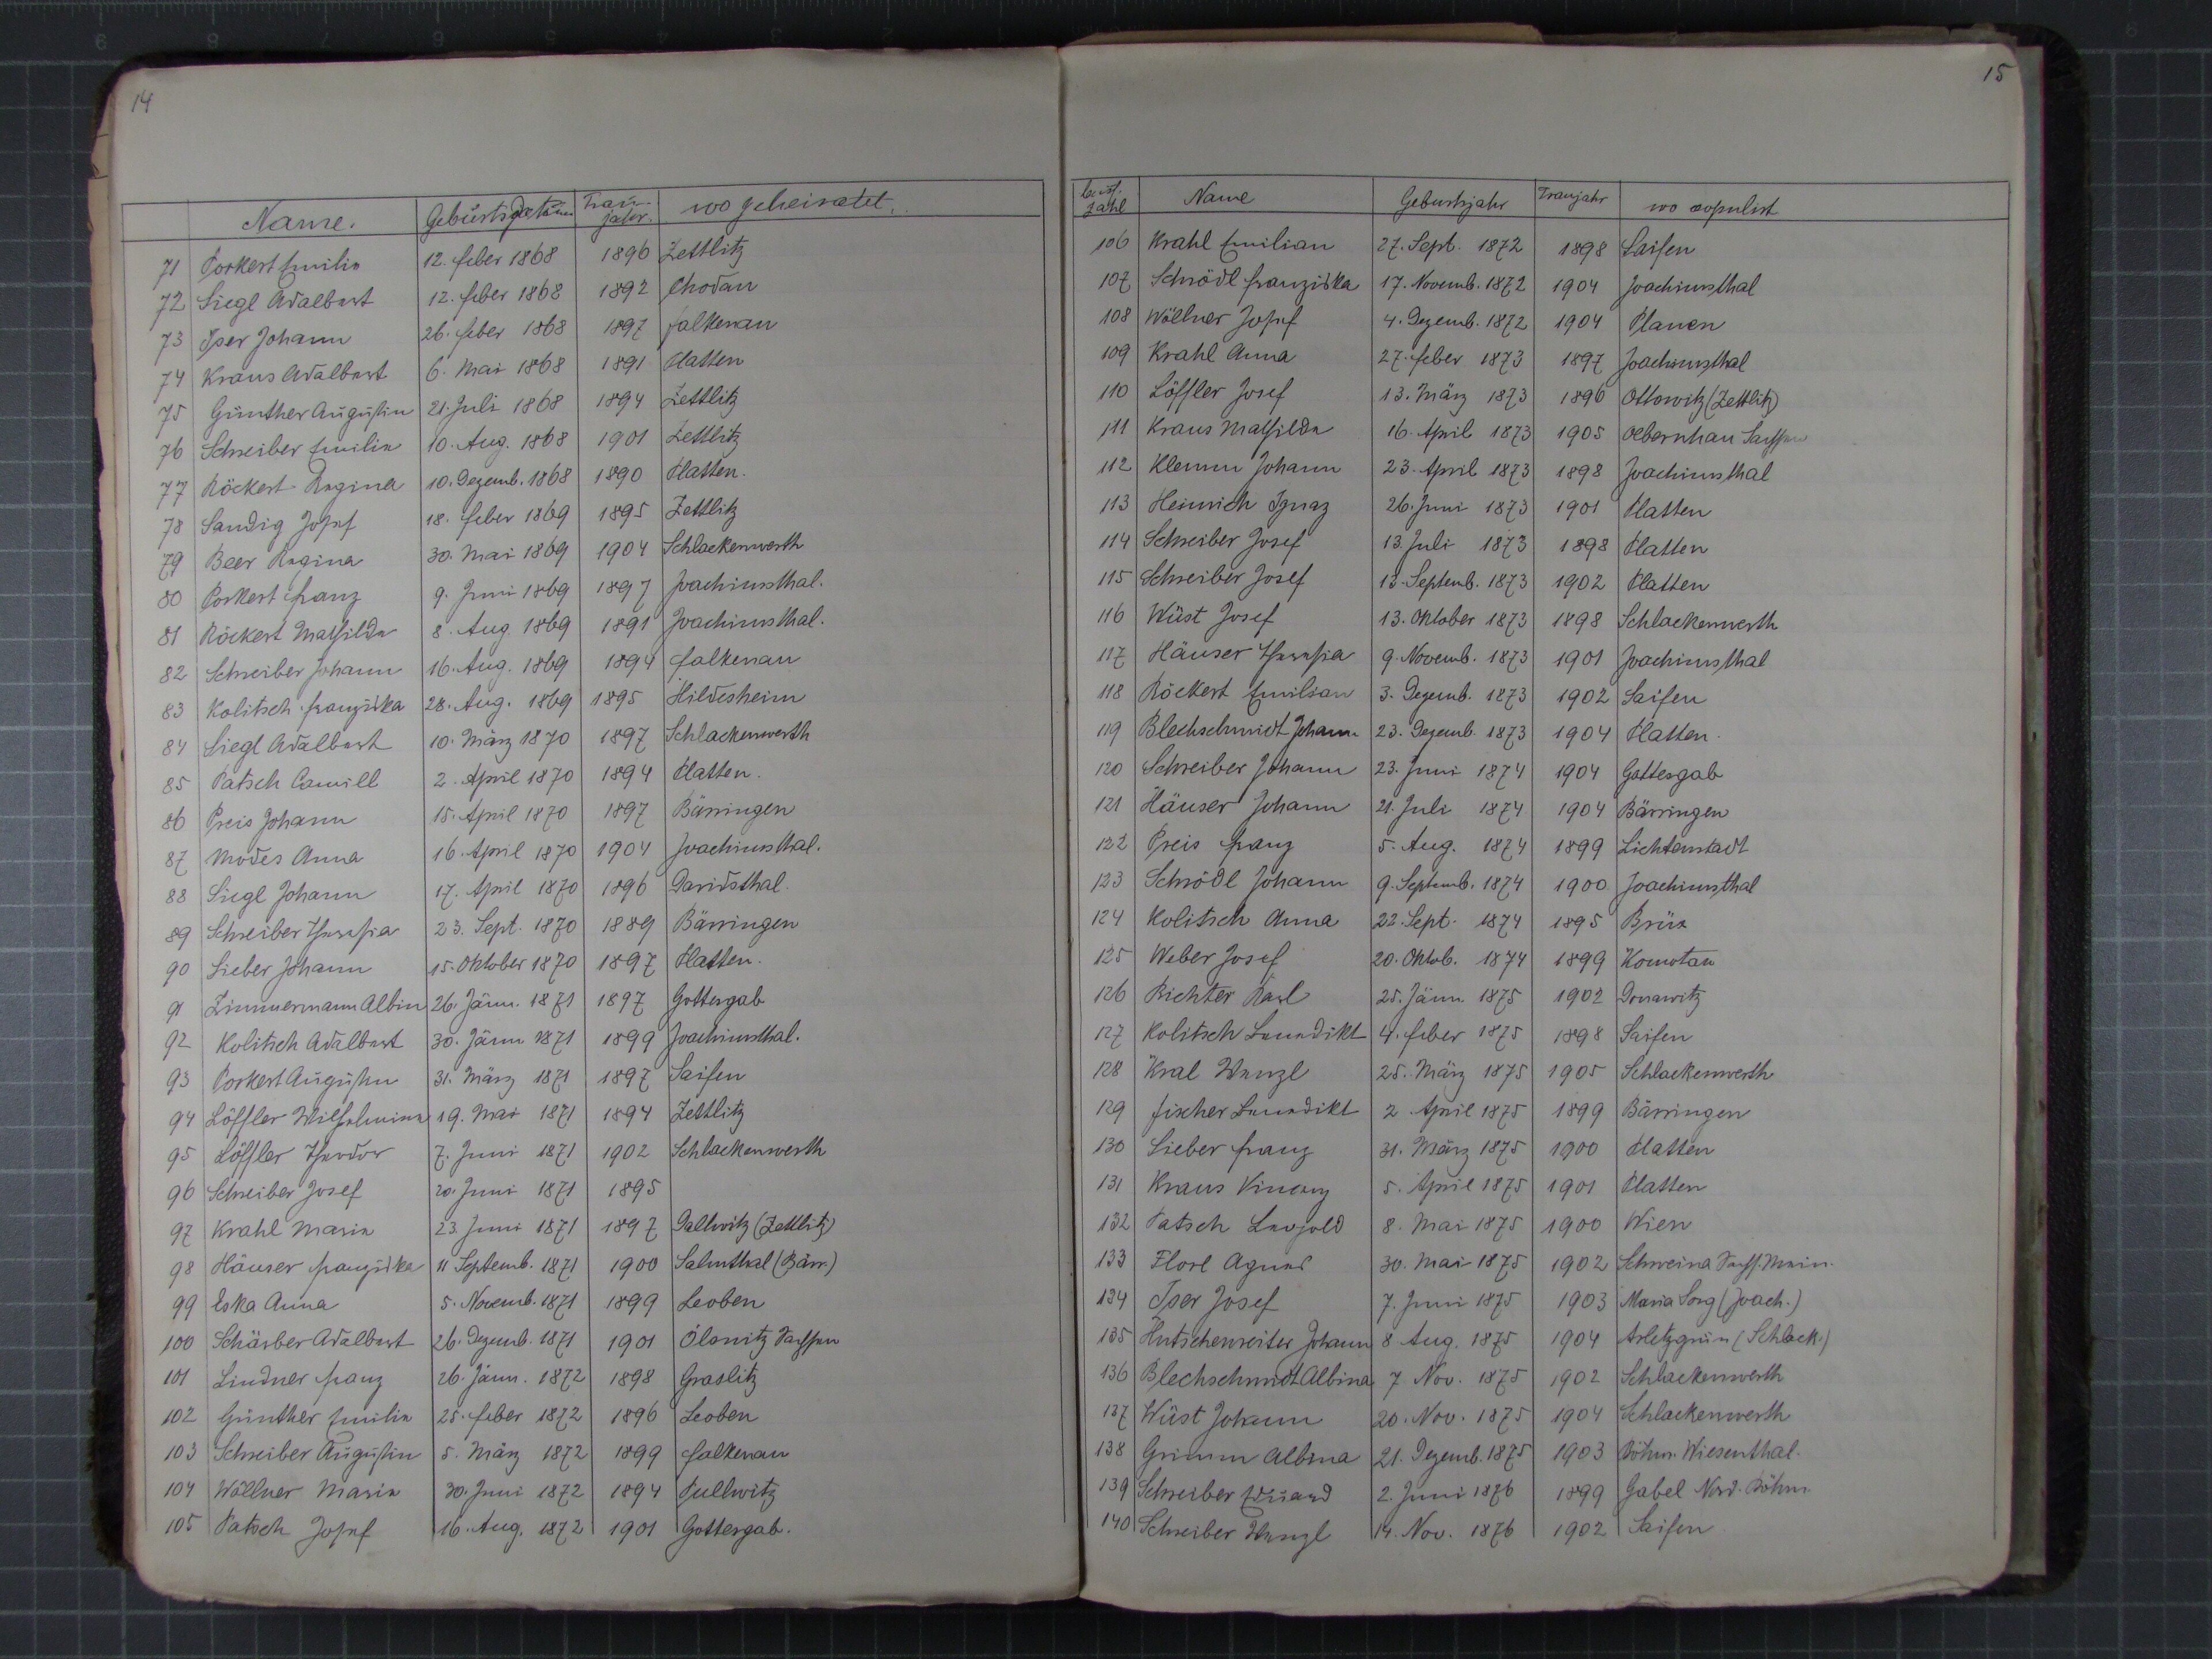 14
Name. Geburtsdatum Trau-jahr. wo geheiratet.
71 Porkert Emilia 12. feber 1868 1896 Zettlitz
72 Siegl Adalbert 12. feber 1868 1892 Chodau
73 Iser Johann 26. feber 1868 1897 falkenau
74 Kraus Adalbert 6. Mai 1868 1891 Platten
75 Günther Augustin 21. Juli 1868 1894 Zettlitz
76 Schreiber Emilia 10. Aug. 1868 1901 Zettlitz
77 Röckert Regina 10. Dezemb. 1868 1890 Platten.
78 Sandig Josef 18. feber 1869 1895 Zettlitz
79 Beer Regina 30. Mai 1869 1904 Schlackenwerth
80 Porkert franz 9. Juni 1869 1897 Joachimsthal.
81 Röckert Mathilda 8. Aug 1869 1891 Joachimsthal.
82 Schreiber Johann 16. Aug. 1869 1894 falkenau
83 Kolitsch franziska 28. Aug. 1869 1895 Hildesheim
84 Siegl Adalbert 10. März 1870 1897 Schlackenwerth
85 Patsch Camill 2. April 1870 1894 Platten.
86 Preis Johann 15. April 1870 1897 Bärringen
87 Modes Anna 16. April 1870 1904 Joachimsthal.
88 Siegl Johann 17. April 1870 1896 Davidsthal.
89 Schreiber Theresia 23. Sept. 1870 1889 Bärringen
90 Sieber Johann 15. Oktober 1870 1897 Platten.
91 Zimmermann Albin 26. Jänn. 1871 1897 Gottesgab
92 Kolitsch Adalbert 30. Jänn 1871 1899 Joachimsthal.
93 Porkert Augustin 31. März 1871 1897 Saifen
94 Löffler Wilhelmina 19. Mai 1871 1894 Zettlitz
95 Löffler Theodor 7. Juni 1871 1902 Schlackenwerth
96 Schreiber Josef 20. Juni 1871 1895
97 Krahl Maria 23. Juni 1871 1897 Dallwitz (Zettlitz)
98 Häuser franziska 11 Septemb. 1871 1900 Salmthal (Bärr.)
99 Eska Anna 5. Novemb. 1871 1899 Leoben
100 Schärber Adalbert 26. Dezemb. 1871 1901 Ölsnitz Sachsen
101 Lindner franz 26. Jänn. 1872 1898 Graslitz
102 Günther Emilia 25. feber 1872 1896 Leoben
103 Schreiber Augustin 5. März 1872 1899 falkenau
104 Wöllner Maria 30. Juni 1872 1894 Pullwitz
105 Patsch Josef 16. Aug. 1872 1901 Gottesgab.
15
lauf. Zahl Name Geburtsjahr Traujahr wo copuliert
106 Krahl Emilian 27. Sept. 1872 1898 Saifen
107 Schrödl franziska 17. Novemb. 1872 1904 Joachimsthal
108 Wöllner Josef 4. Dezemb. 1872 1904 Plauen
109 Krahl Anna 27. feber 1873 1897 Joachimsthal
110 Löffler Josef 13. März 1873 1896 Ottowitz (Zettlitz)
111 Kraus Mathilda 16. April 1873 1905 Olbernhau Sachsen
112 Klemm Johann 23. April 1873 1898 Joachimsthal
113 Heinrich Ignaz 26. Juni 1873 1901 Platten
114 Schreiber Josef 13. Juli 1873 1898 Platten
115 Schreiber Josef 13. Septemb. 1873 1902 Platten
116 Wüst Josef 13. Oktober 1873 1898 Schlackenwerth
117 Häuser Theresia 9. Novemb. 1873 1901 Joachimsthal
118 Röckert Emilian 3. Dezemb. 1873 1902 Saifen
119 Blechschmidt Johann 23. Dezemb. 1873 1904 Platten.
120 Schreiber Johann 23. Juni 1874 1904 Gottesgab
121 Häuser Johann 21. Juli 1874 1904 Bärringen
122 Preis franz 5. Aug. 1874 1899 Lichtenstadt
123 Schrödl Johann 9. Septemb. 1874 1900 Joachimsthal
124 Kolitsch Anna 22. Sept. 1874 1895 Brüx
125 Weber Josef 20. Oktob. 1874 1899 Komotau
126 Richter Karl 25. Jänn. 1875 1902 Donawitz
127 Kolitsch Benedikt 4. feber 1875 1898 Saifen
128 Kral Wenzl 25. März 1875 1905 Schlackenwerth
129 fischer Benedikt 2 April 1875 1899 Bärringen
130 Sieber franz 31. März 1875 1900 Platten
131 Kraus Vinzenz 5. April 1875 1901 Platten
132 Patsch Leopold 8. Mai 1875 1900 Wien
133 Florl Agnes 30. Mai 1875 1902 Schweina Sachs. Mein.
134 Iser Josef 7. Juni 1875 1903 Maria Sorg (Joach.)
135 Hutschenreiter Johann 8 Aug. 1875 1904 Arletzgrün (Schlack.)
136 Blechschmidt Albina 7 Nov. 1875 1902 Schlackenwerth
137 Wüst Johann 20. Nov. 1875 1904 Schlackenwerth
138 Grimm Albina 21. Dezemb. 1875 1903 Böhm. Wiesenthal.
139 Schreiber Eduard 2. Juni 1876 1899 Gabel Nord. Böhm.
140 Schreiber Wenzl 14. Nov. 1876 1902 Saifen